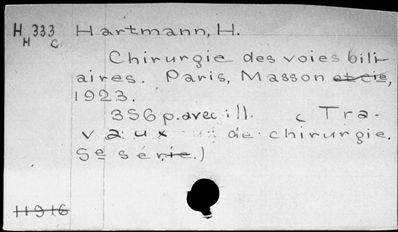 H 333 Hartmann, H.
H C
Chirurgie des voies bili-
aires. Paris, Masson et cie,
1923.
356 p. avec ill. (Tra-
vaux de chirurgie.
5e série.)
11916